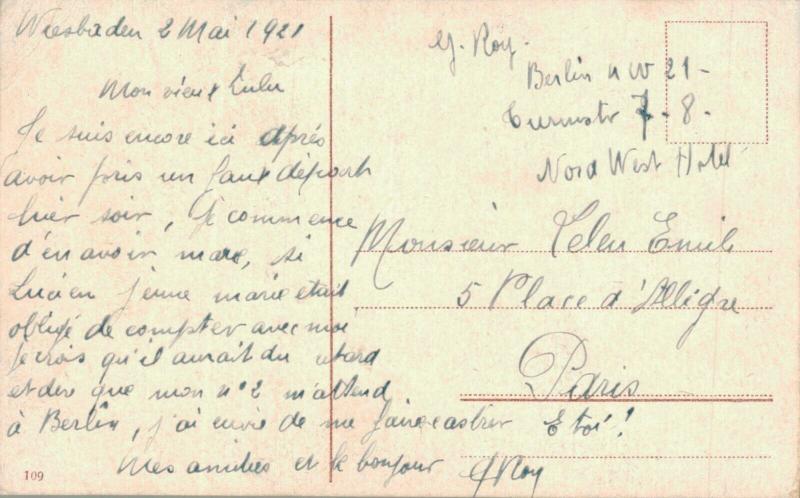 Wiesbaden 2 Mai 1921
Mon vieux Lulu
Je suis encore ici après
avoir pris un faux départ
hier soir, je commence
d'en avoir mare, si
Lucien jeune marie etait
obligé de compter avec moi
je crois qu'il aurait du retard
et dire que mon n°2 m'attend
à Berlin, j'ai envie de me faire castrer Et toi!
Mes amities et le bonjour GRoy
109
G. Roy.
Berlin NW 21-
Turmstr 7-8.
Nord West Hotel
Monsieur Telen Emile
5 Place d'Alligre
Paris